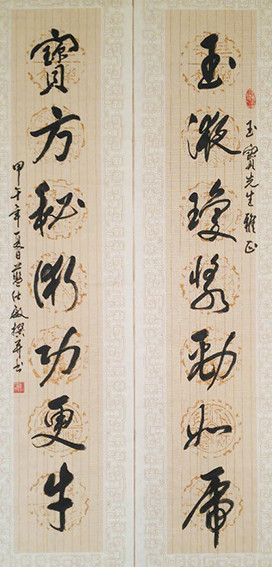 玉液瓊漿勁如虎
玉寶先生雅正
寶方秘術功更牛
甲午年夏日仕敏撰并书